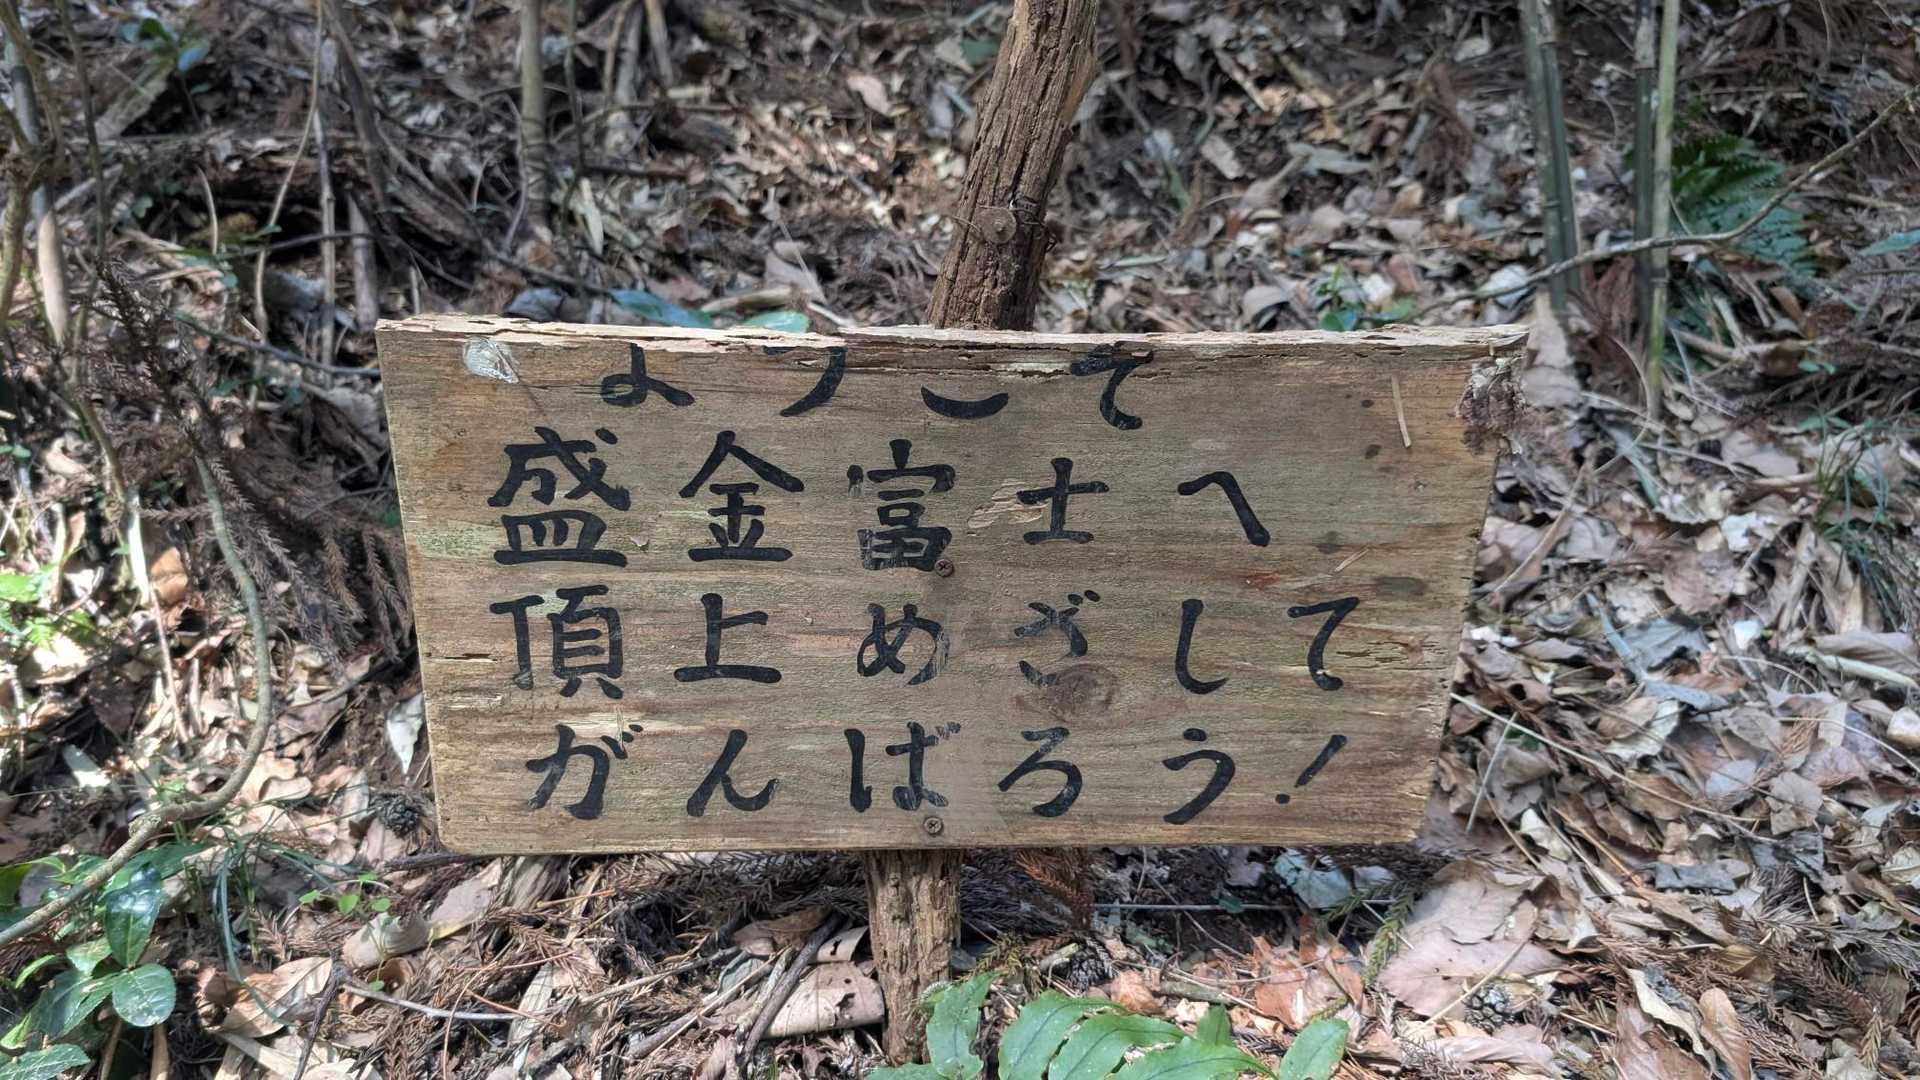 ようこそ
盛金富士へ
頂上めざして
がんばろう！